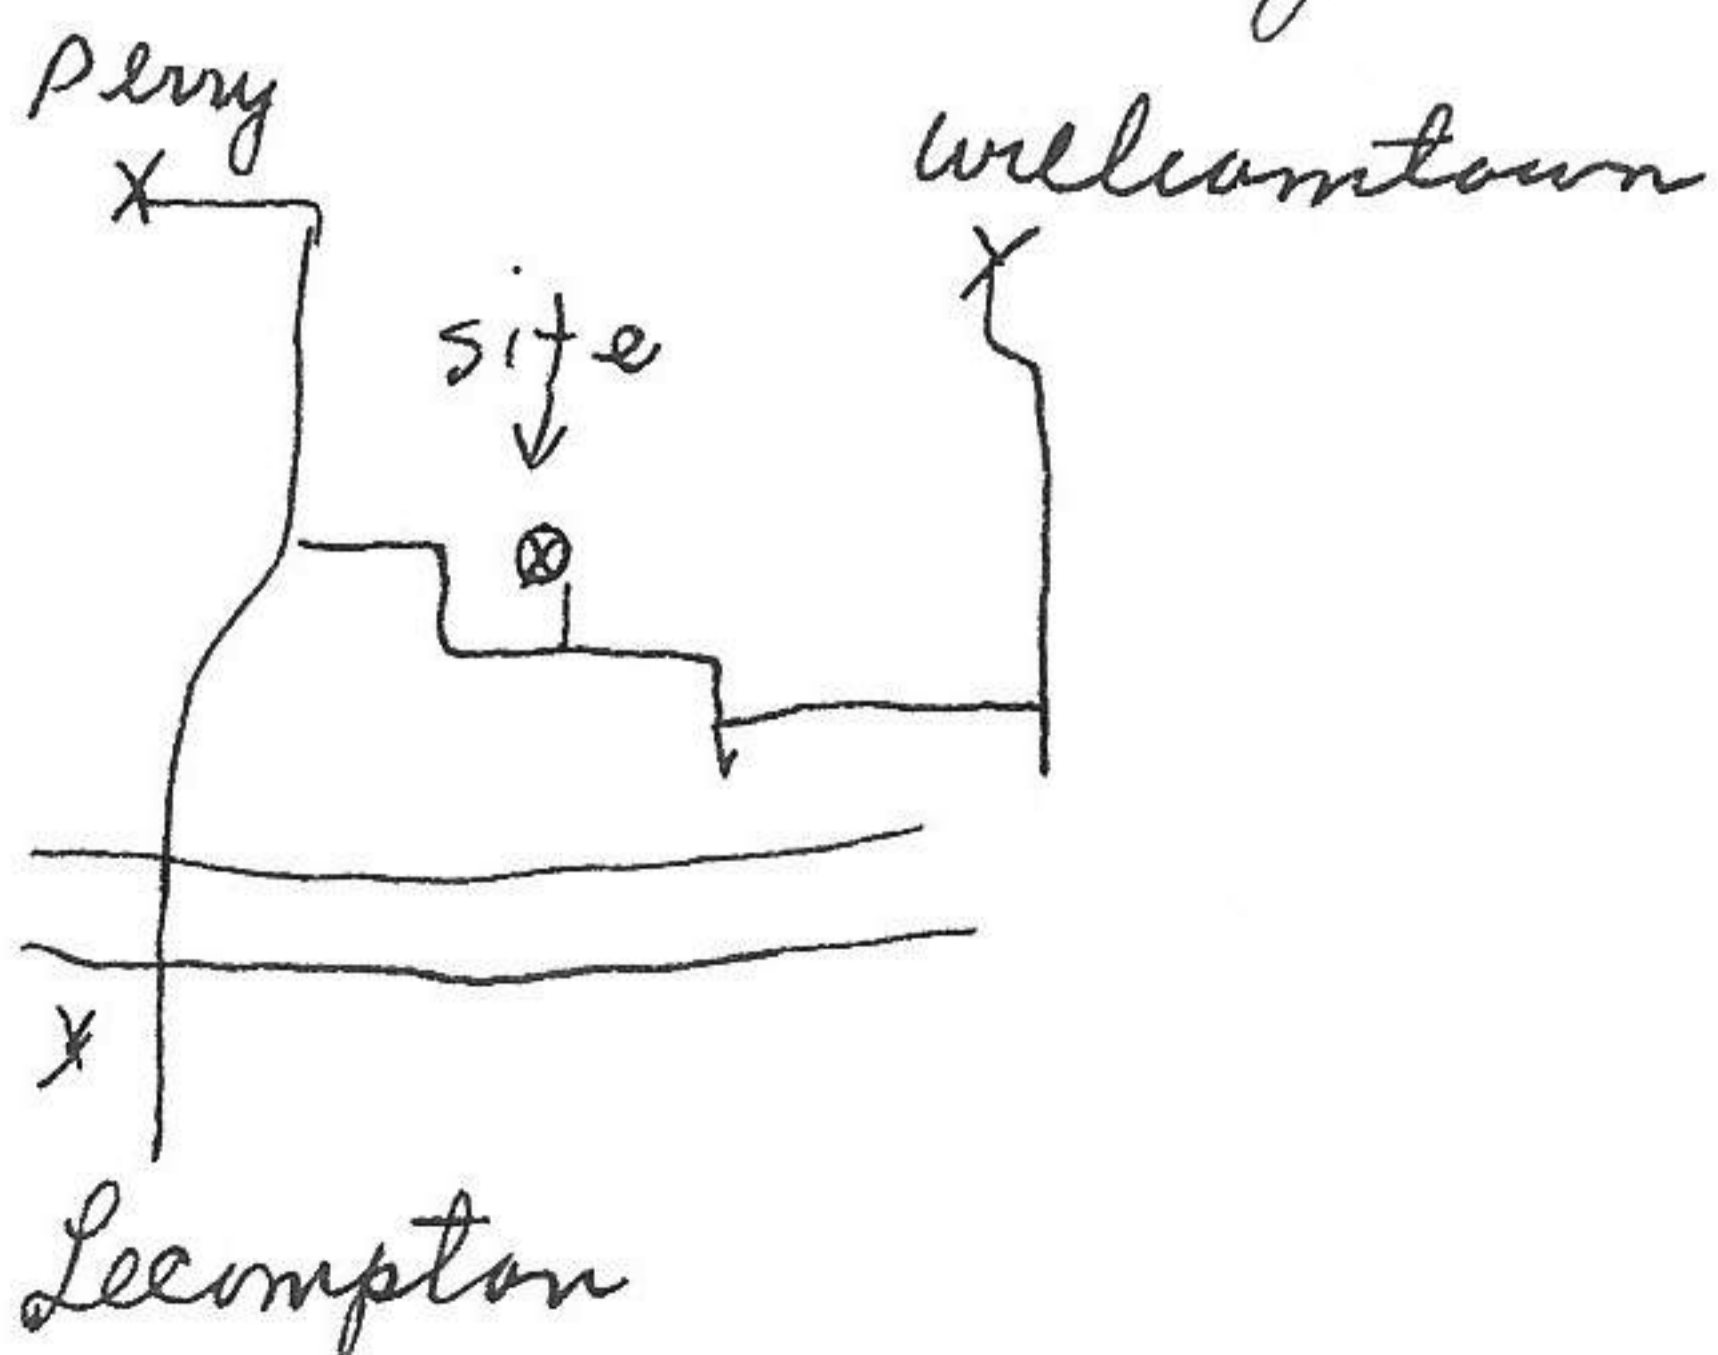 Perry
Williamtown
site
Lecompton